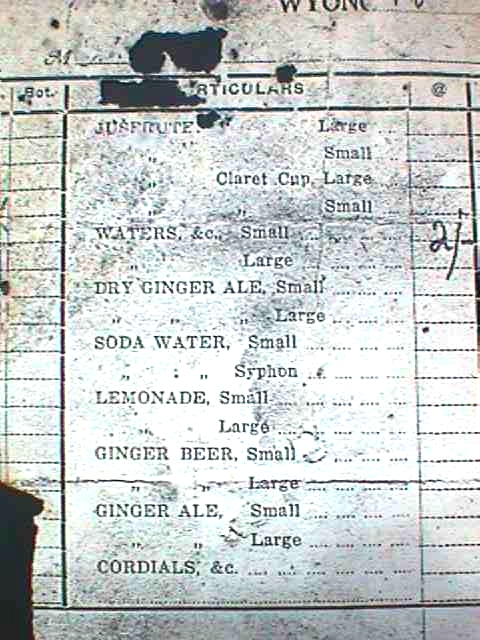 WYONG
M
Bot. RTICULARS @
JUSFRUTE Large ...
„ Small ...
„ Claret Cup, Large
„ „ Small
WATERS, &c., Small ... ... ... 2/-
„ Large ... ... ...
DRY GINGER ALE, Small ... ... ...
„ „ „ Large ... ... ...
SODA WATER, Small ... ... ... ...
„ : „ Syphon ... ... ... ...
LEMONADE, Small ... ... ... ...
„ Large ... ... ... ...
GINGER BEER, Small ... ... ...
„ „ Large ... ... ... ...
GINGER ALE, Small ... ... ... ...
„ „ Large ... ... ... ...
CORDIALS, &c. ... ... ... ... ...